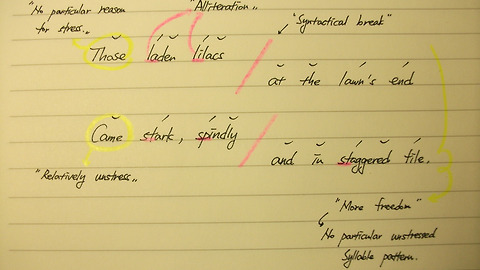 "No particular reason
for stress"
"Alliteration"
"Syntactical break"
Those laden lilacs
at the lawn's end
Came stark, spindly
and in staggered file.
"Relatively unstress"
"More freedom"
No particular unstressed
Syllable pattern.